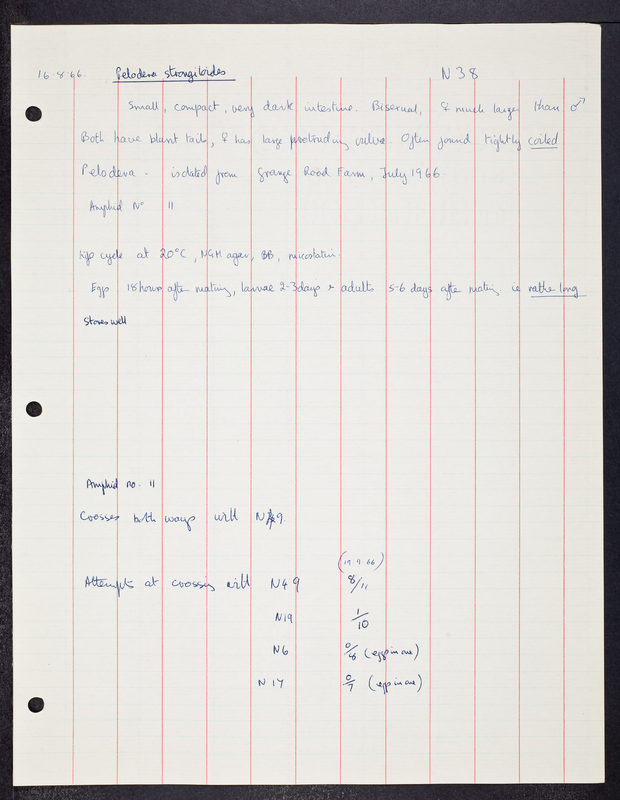 16.8.66. Pelodera strongiloides N38
Small, compact, very dark intestine. Bisexual, ♀ much larger than ♂
Both have blunt tails, ♀ has large protruding vulva. Often found tightly coiled
Pelodera - isolated from Grange Road Farm, July 1966
Amphid No 11
Life cycle at 20°C, NGM agar, BB, micostatin.
Eggs 18 hours after mating, larvae 2-3 days & adults 5-6 days after mating ie rather long
Stores well
Amphid no. 11
Crosses both ways with N49.
(19.9.66)
Attempts at crossing with N49 8/11
N19 1/10
N6 0/8 (eggs in one)
N17 0/7 (eggs in one)